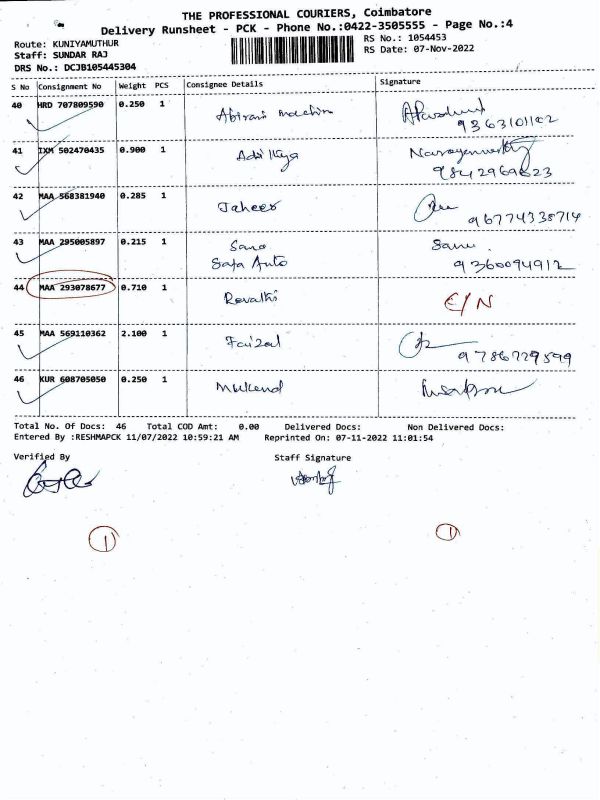 THE PROFESSIONAL COURIERS, Coimbatore
Delivery Runsheet - PCK - Phone No.:0422-3505555 - Page No.:4
Route: KUNIYAMUTHUR RS No.: 1054453
Staff: SUNDAR RAJ RS Date: 07-Nov-2022
DRS No.: DCJB105445304
S No Consignment No Weight PCS Consignee Details Signature
40 HRD 707809590 0.250 1 Abirami machin
9363101102
41 IXM 502470435 0.900 1
42 MAA 568381940 0.285 1 Jaheer
96774338714
43 MAA 295005897 0.215 1 Sano Sanu
Safa Auto 9360094912
44 MAA 293078677 0.710 1 Revathi E/N
45 MAA 569110362 2.100 1 Faizal
9786729599
46 KUR 608705050 0.250 1 Mukend
Total No. Of Docs: 46 Total COD Amt: 0.00 Delivered Docs: Non Delivered Docs:
Entered By :RESHMAPCK 11/07/2022 10:59:21 AM Reprinted On: 07-11-2022 11:01:54
Verified By Staff Signature
1 1